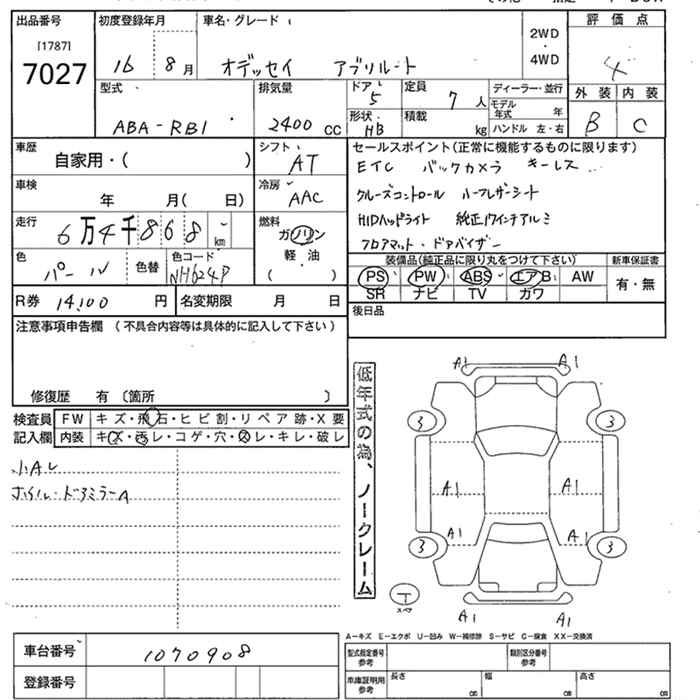 出品番号 初度登録年月 車名・グレード 2WD・4WD 評価点
[1787]
7027 16 8月 オデッセイ アブソルート 4
型式 排気量 ドア 5 定員 7人 ディーラー・並行 外装 内装
ABA-RB1 2400cc 形状 HB 積載 kg モデル年式 年 B C
ハンドル 左・右
車歴 自家用・( ) シフト AT セールスポイント(正常に機能するものに限ります)
ETC バックカメラ キーレス
車検 年 月( 日) 冷房 AAC クルーズコントロール ハーフレザーシート
走行 6万4千868km 燃料 ガソリン HIDヘッドライト 純正17インチアルミ
軽・油 フロアマット・ドアバイザー
( )
色 パール 色替 色コード NH624P 装備品(純正品に限り丸をつけて下さい) 新車保証書
PS PW ABS エアB AW 有・無
R券 14,100円 名変期限 月 日 SR ナビ TV カワ
注意事項申告欄(不具合内容等は具体的に記入して下さい) 後日品
修復歴 有〔箇所 〕
検査員 FW キズ・飛石・ヒビ割・リペア跡・X要
記入欄 内装 キズ・汚レ・コゲ・穴・スレ・キレ・破レ
小Aし
ホイル・ドアミラーA
低年式の為、ノークレーム
A1 A1
3 3
A1 A1
A1 A1
3 3
A1 A1
スペア
A-キズ E-エクボ U-凹み W-補修跡 S-サビ C-腐食 XX-交換済
車台番号 1070908 型式指定番号 参考 類別区分番号 参考
登録番号 車庫証明用 参考 長さ cm 幅 cm 高さ cm